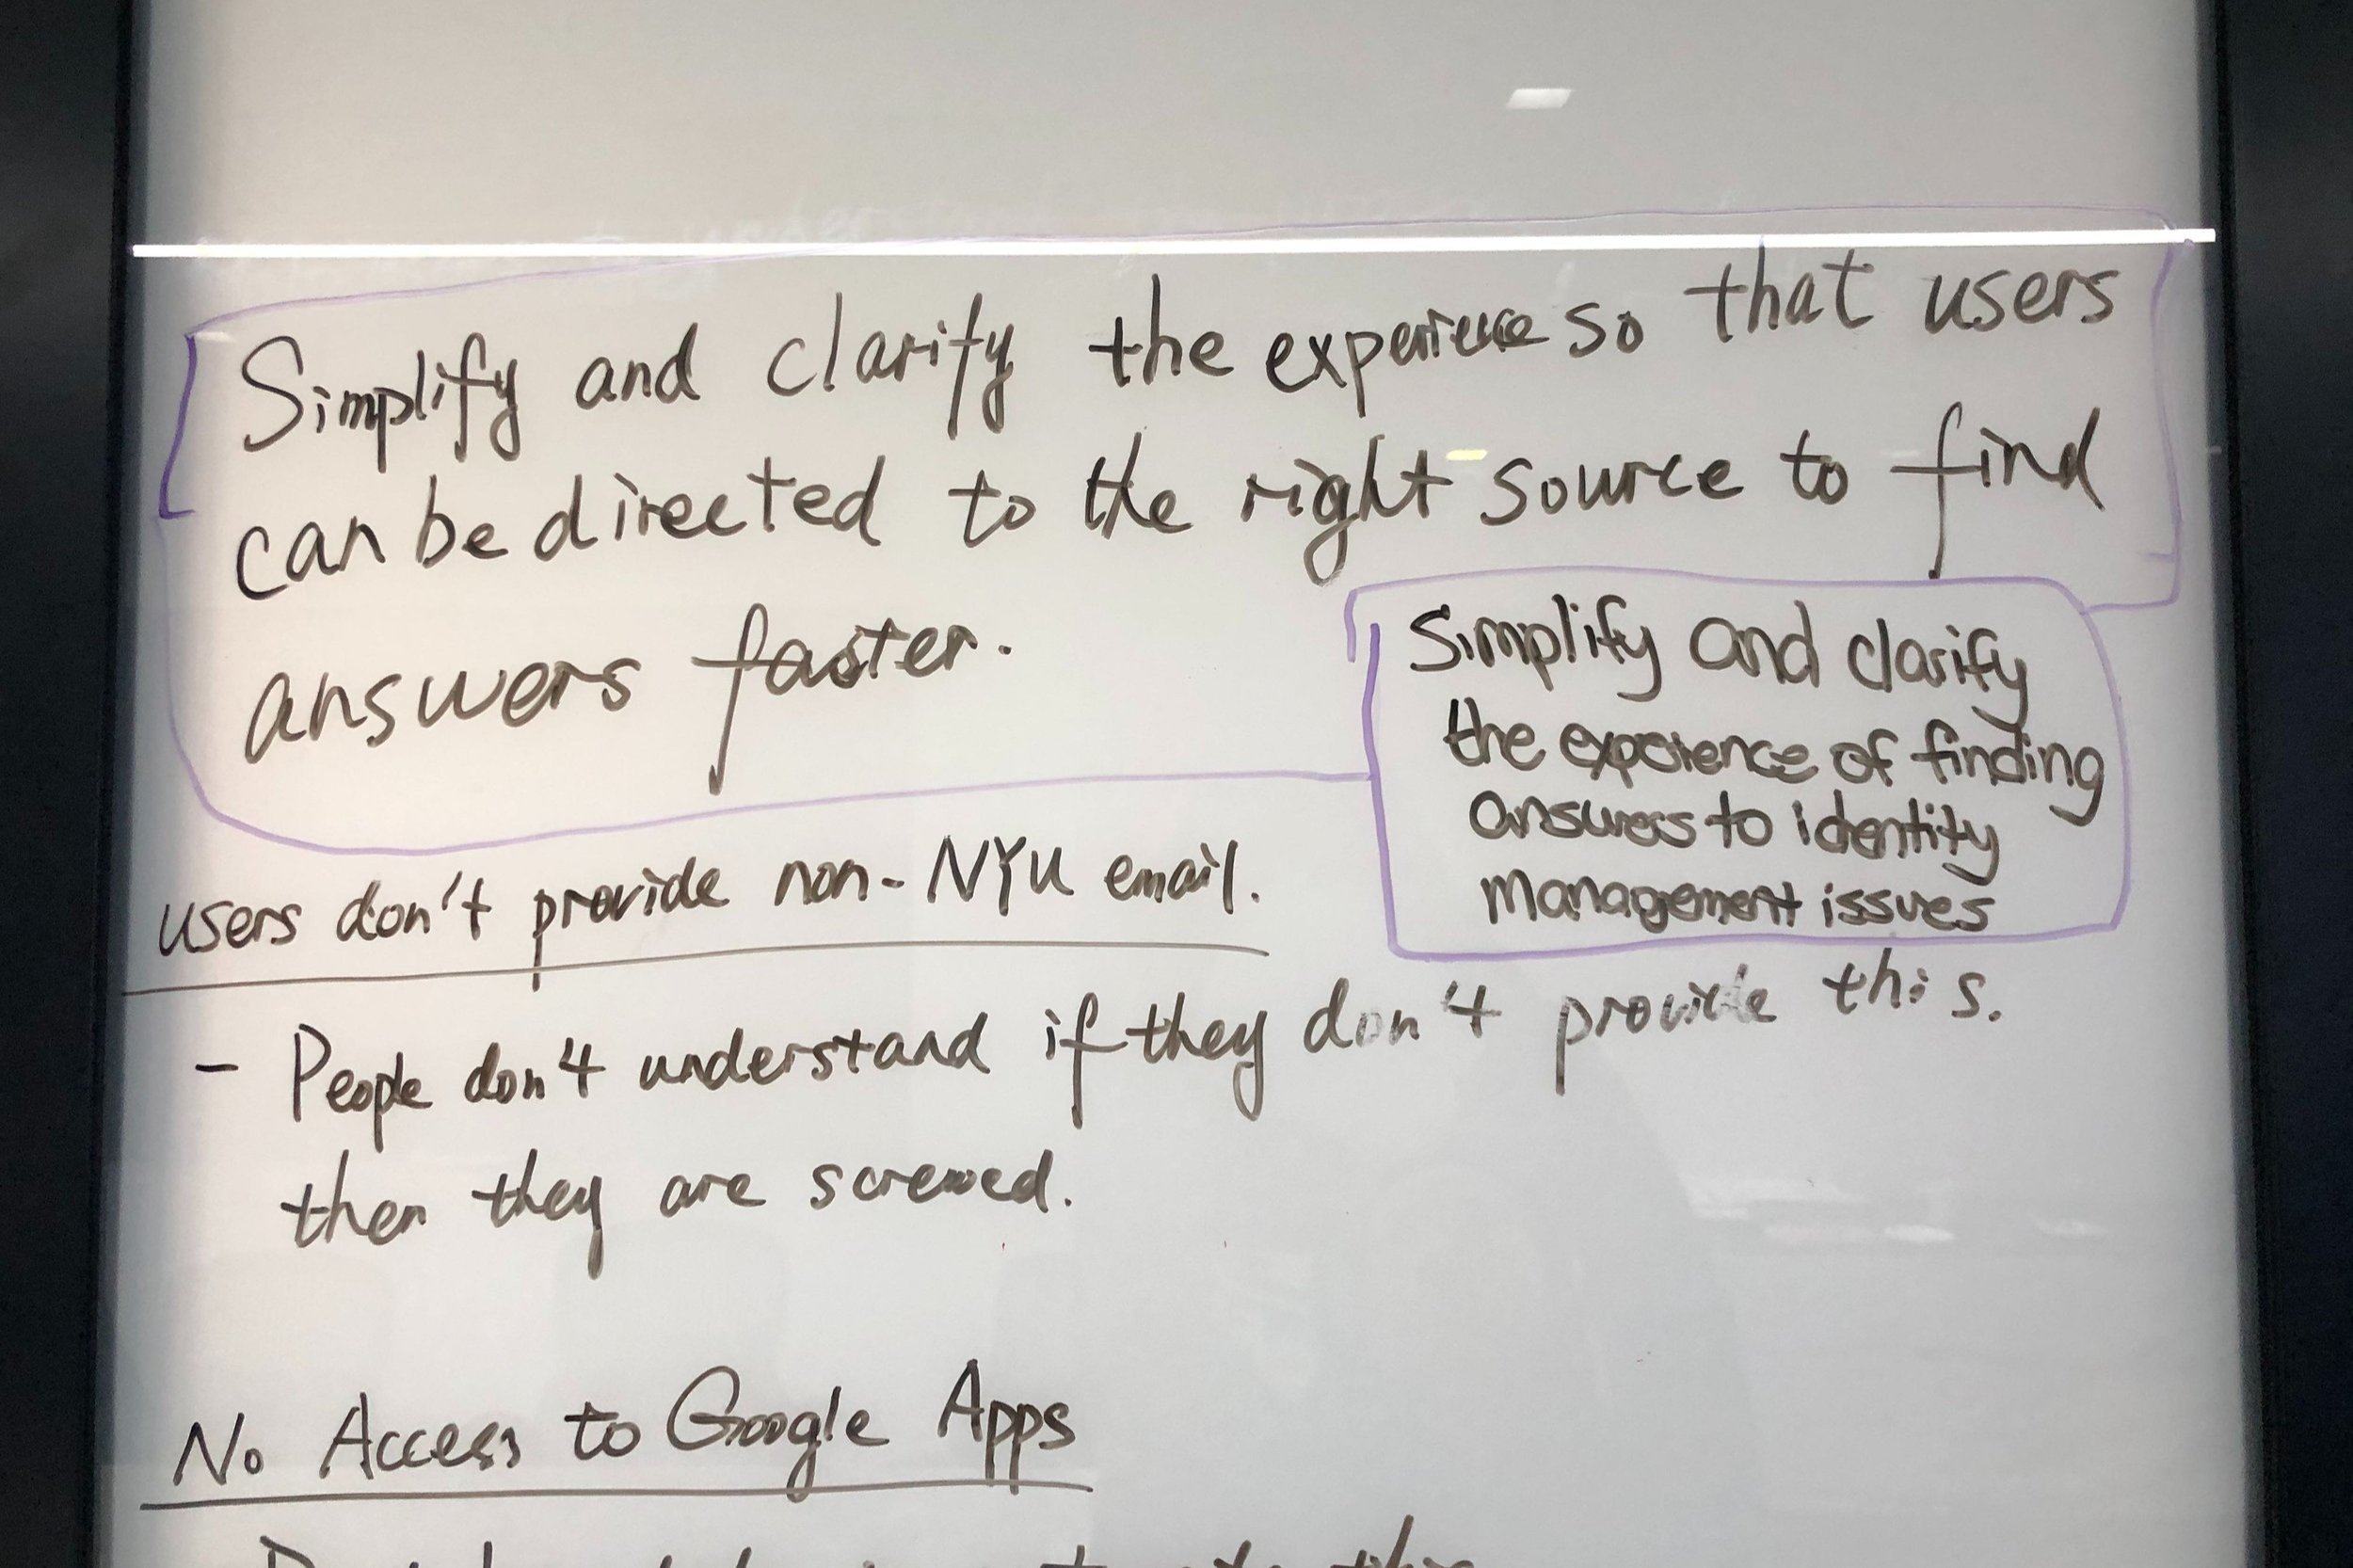 Simplify and clarify the experience so that users
can be directed to the right source to find
answers faster.
Simplify and clarify
the experience of finding
answers to identity
management issues
users don't provide non-NYU email.
- People don't understand if they don't provide this.
then they are screwed.
No Access to Google Apps